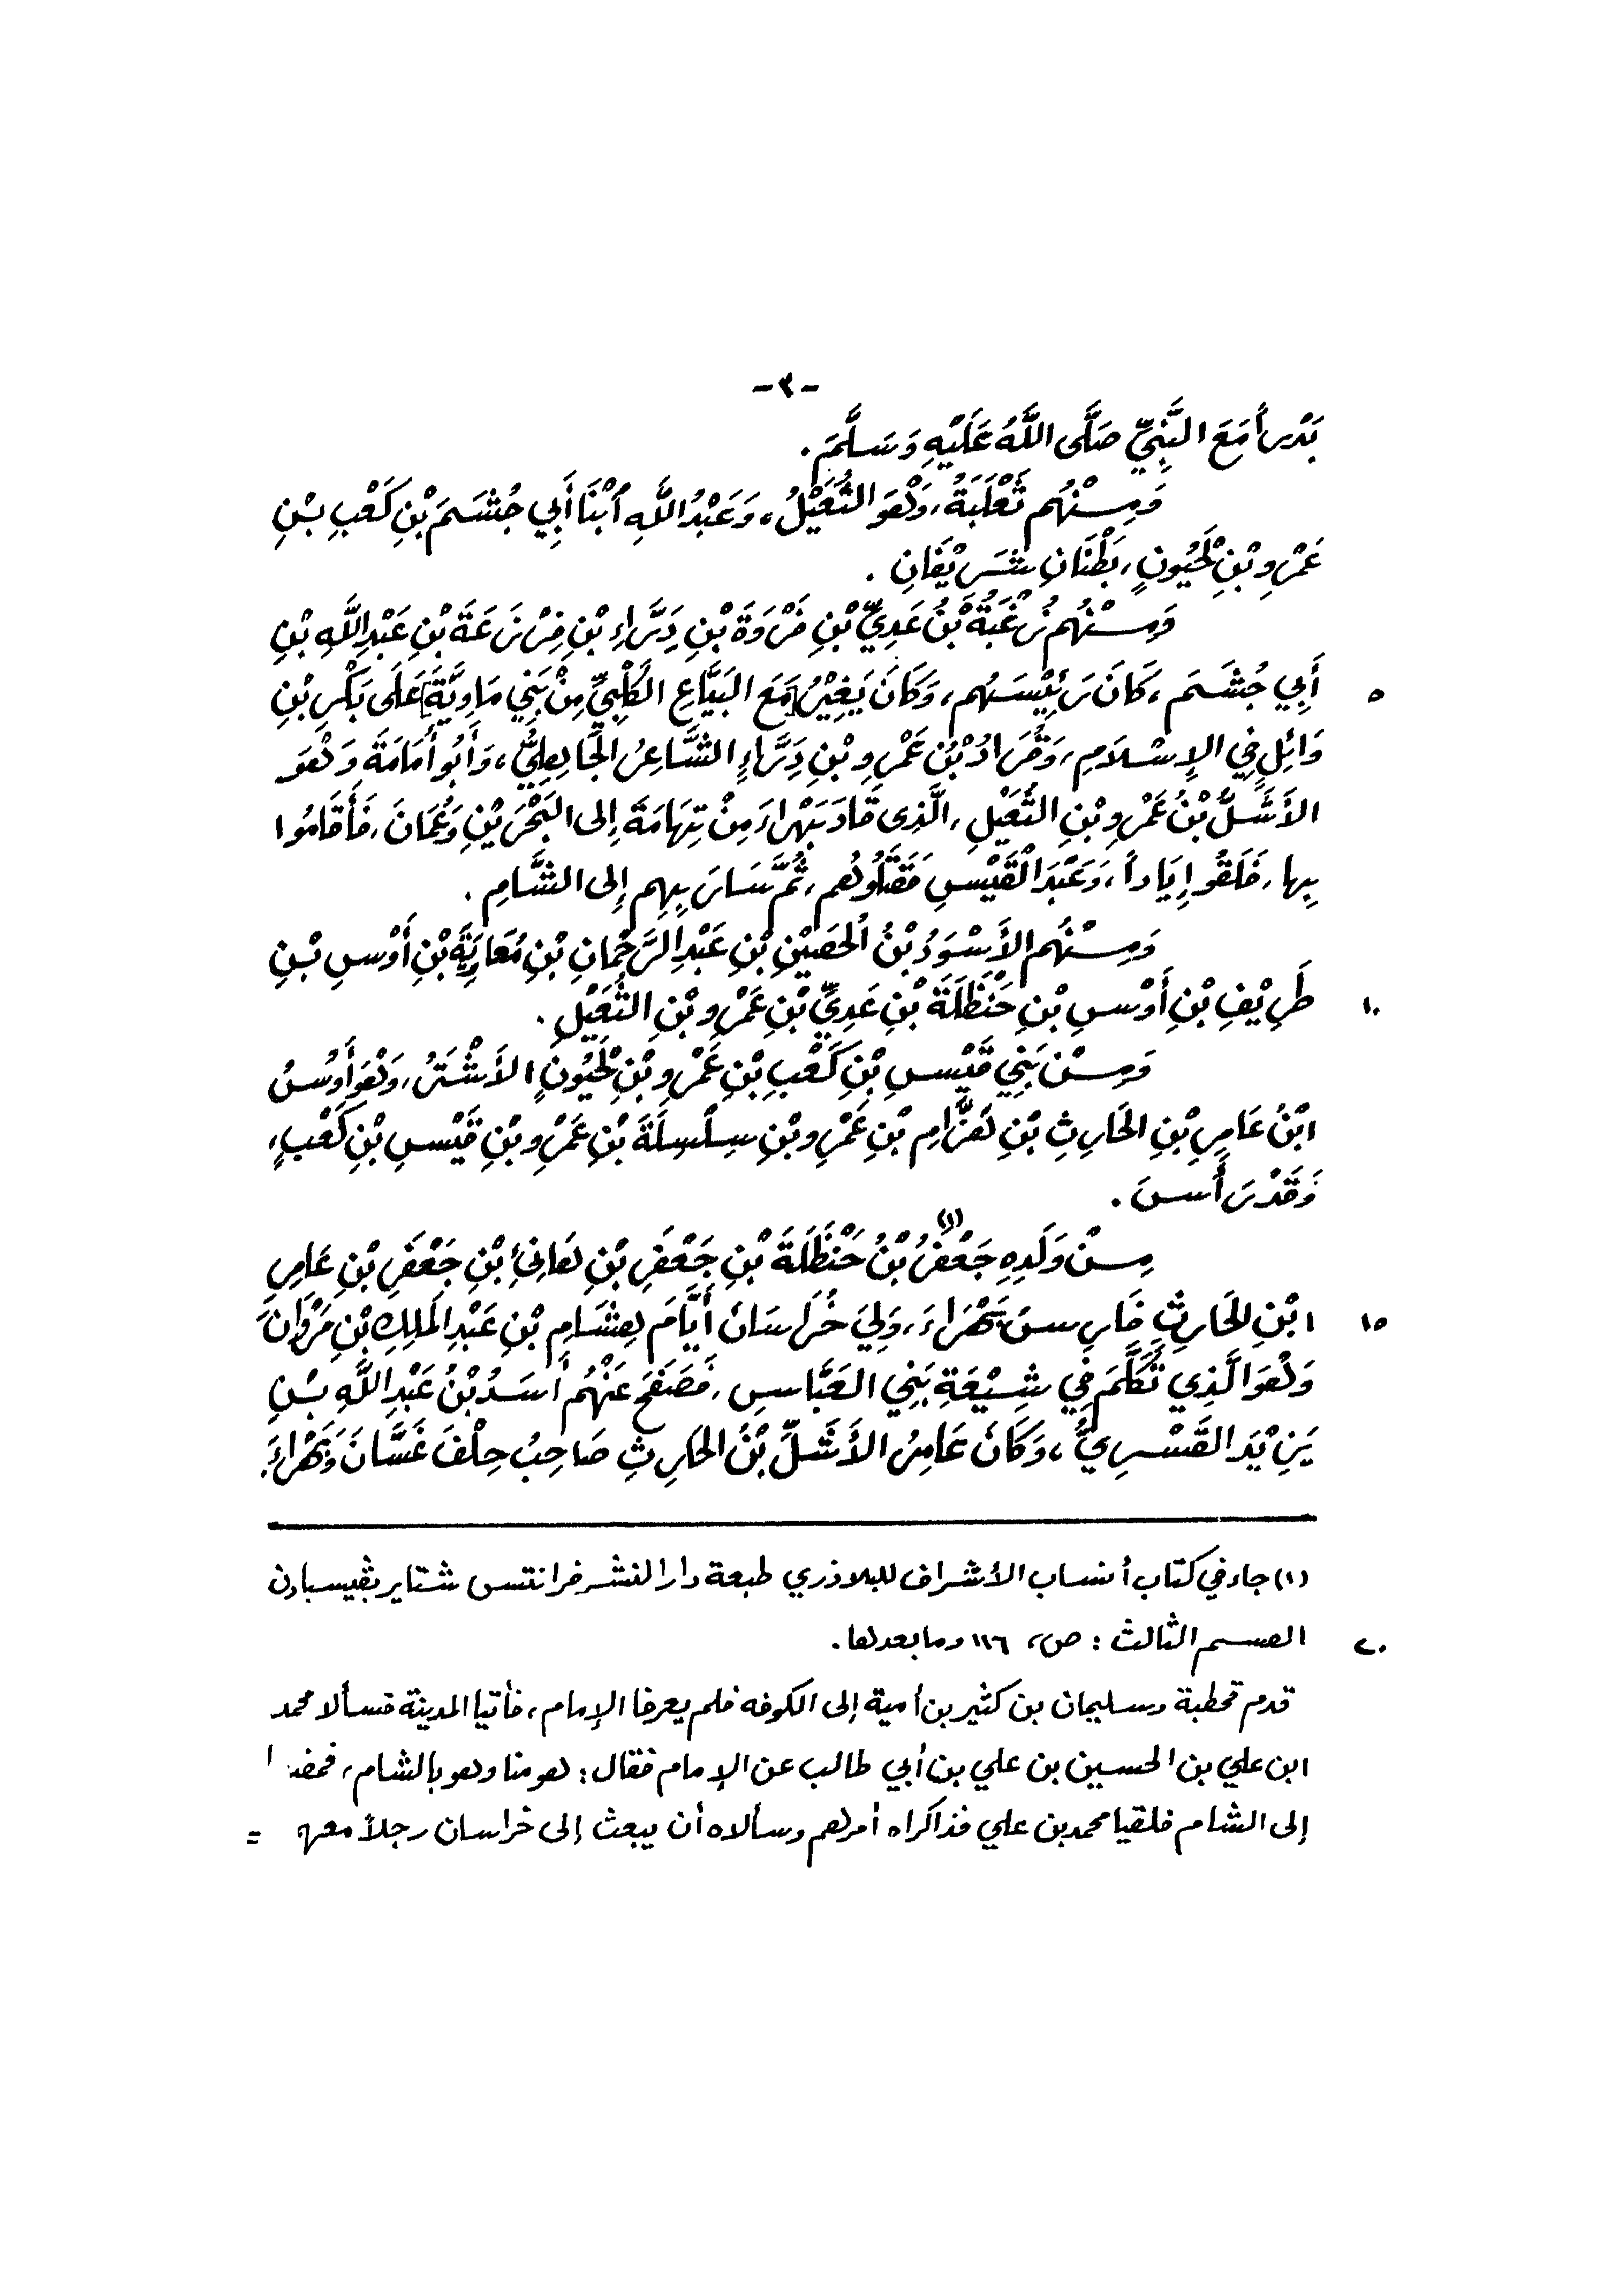 -٣-
بَدْراً مَعَ النَّبِيِّ صَلَّى اللَّهُ عَلَيْهِ وَسَلَّمَ.
وَمِنْهُم ثَعْلَبَةُ، وَهْوَ الثُّعَيْلُ، وَعَبْدُ اللَّهِ ابْنَا أَبِي جُشَمَ بْنِ كَعْبِ بْنِ
عَمْرِو بْنِ لِحْيُونٍ، بَطْنَانِ شَرِيْفَانِ.
وَمِنْهُم زُغْبَةُ بْنُ عَدِيِّ بْنِ فَرْوَةَ بْنِ دَرَّاءِ بْنِ مَزْرَعَةَ بْنِ عَبْدِ اللَّهِ بْنِ
٥ أَبِي جُشَمَ، كَانَ رَئِيْسَهُم، وَكَانَ يَغِيْرُ [مَعَ البَيَّاعِ الكَلْبِيِّ مِنْ بَنِي مَاوِيَّةَ] عَلَى بَكْرِ بْنِ
وَائِلٍ فِي الإِسْلَامِ، وَقُرَادُ بْنُ عَمْرِو بْنِ دَرَّاءِ الشَّاعِرُ الجَاهِلِيُّ، وَأَبُو أُمَامَةَ وَهْوَ
الأَشَلُّ بْنُ عَمْرِو بْنِ الثُّعَيْلِ، الَّذِي قَادَ بَهْرَاءَ مِنْ تِهَامَةَ إِلى البَحْرَيْنِ وَعُمَانَ، فَأَقَامُوا
بِها، فَلَقُوا إِيَاداً، وَعَبْدَ الْقَيْسِ فَقَتَلُوهُم، ثُمَّ سَارَ بِهِم إِلى الشَّامِ.
وَمِنْهُم الأَسْوَدُ بْنُ الحُصَيْنِ بْنِ عَبْدِ الرَّحْمَانِ بْنِ مُعَاوِيَةَ بْنِ أَوْسِ بْنِ
١٠ طَرِيْفِ بْنِ أَوْسِ بْنِ حَنْظَلَةَ بْنِ عَدِيِّ بْنِ عَمْرِو بْنِ الثُّعَيْلِ.
وَمِنْ بَنِي قَيْسِ بْنِ كَعْبِ بْنِ عَمْرِو بْنِ لِحْيُونٍ الأَشْتَرُ، وَهْوَ أَوْسُ
ابْنُ عَامِرِ بْنِ الحَارِثِ بْنِ هَزَّامِ بْنِ عَمْرِو بْنِ سِلْسِلَةَ بْنِ عَمْرِو بْنِ قَيْسِ بْنِ كَعْبٍ،
وَقَدْ رَأَسَ.
مِنْ وَلَدِهِ جَعْفَرُ (١) بْنُ حَنْظَلَةَ بْنِ جَعْفَرِ بْنِ هَانِئِ بْنِ جَعْفَرِ بْنِ عَامِرِ
١٥ ابْنِ الحَارِثِ فَارِسُ بَهْرَاءَ، وَلِيَ خُرَاسَانَ أَيَّامَ هِشَامِ بْنِ عَبْدِ المَلِكِ بْنِ مَرْوَانَ
وَهْوَ الَّذِي تَكَلَّمَ فِي شِيْعَةِ بَنِي العَبَّاسِ، فَصَفَحَ عَنْهُم أَسَدُ بْنُ عَبْدِ اللَّهِ بْنِ
يَزِيْدَ القَسْرِيُّ، وَكَانَ عَامِرُ الأَشَلُّ بْنُ الحَارِثِ صَاحِبُ حِلْفَ غَسَّانَ وَبَهْرَاءَ.
(١) جاء في كتاب أنساب الأشراف للبلاذري طبعة دار النشر فرانتس شتاير بڤيسبادن
٢٠ القسم الثالث: ص، ١١٦ وما بعدها.
قدم قحطبة وسليمان بن كثير بن أمية إلى الكوفه فلم يعرفا الإمام، فأتيا المدينة فسألا محمد
ابن علي بن الحسين بن علي بن أبي طالب عن الإمام فقال: هو منا وهو بالشام، فمضيا
إلى الشام فلقيا محمد بن علي فذاكراه أمرهم وسألاه أن يبعث إلى خراسان رجلاً معهم =